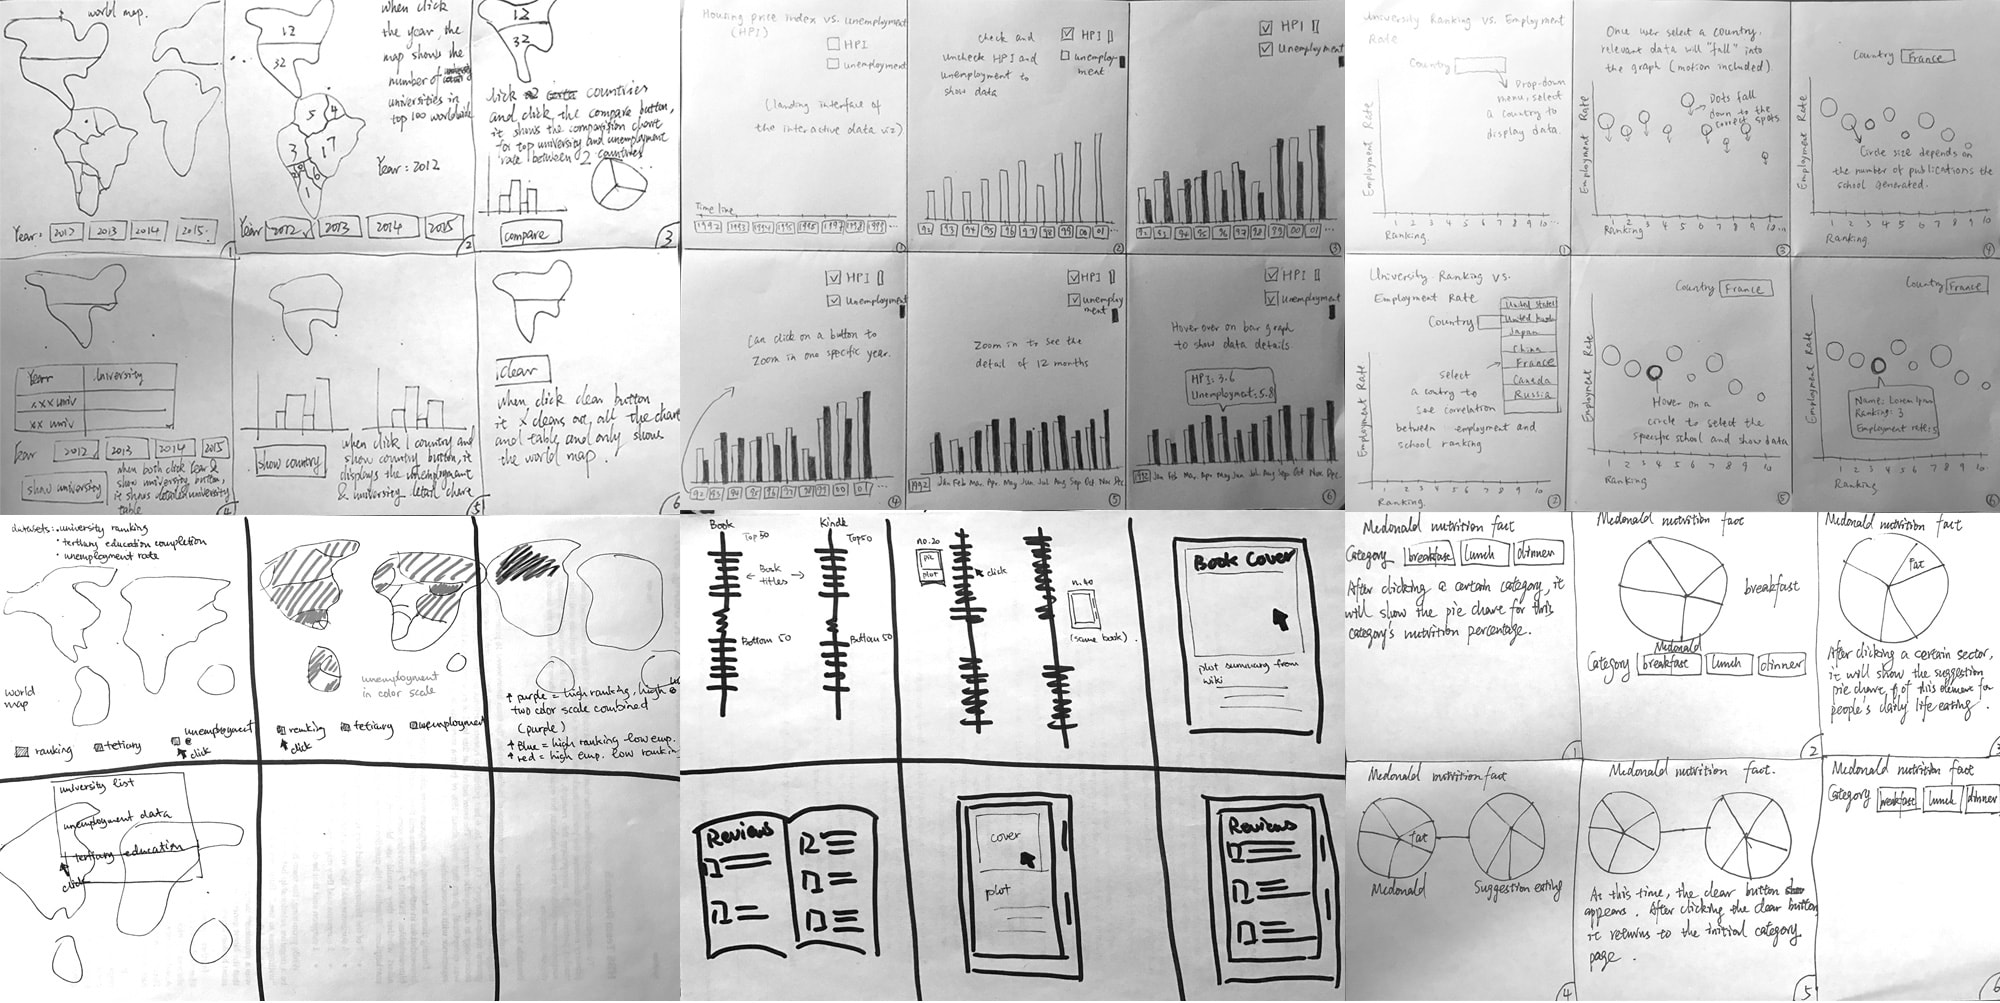 world map.
Year: 2012 2013 2014 2015.
1
12
32
5 4
3 17
6
1
when click
the year, the
map shows the
number of
universities in
top 100 worldwide
Year: 2012
Year 2012 2013 2014 2015
2
12
32
click 2 countries
and click, the compare button,
it shows the comparision chart
for top university and unemployment
race between 2 countries
compare
3
Year University
xxx univ
xx univ
Year 2012 2013 2014 2015
show university
when both click Year &
show university button,
it shows detailed university
table
4
show country
when click 1 country and
show country button, it
displays the unemployment
& university detail chare
5
clear
when click clear button
it x cleans out, all the chart
and table and only shows
the world map.
6
Housing price index vs. unemployment
(HPI)
HPI
unemployment
(landing interface of
the interactive data viz)
Time line
1992 1993 1994 1995 1996 1997 1998 1999 ...
1
check and
uncheck HPI and
unemployment to
show data
HPI
unemploy-
ment
92 93 94 95 96 97 98 99 00 01 ...
2
HPI
Unemployment
92 93 94 95 96 97 98 99 00 01 ...
3
HPI
Unemployment
Can click on a button to
Zoom in one specific year.
92 93 94 95 96 97 98 99 00 01 ...
4
HPI
unemploy
ment
Zoom in to see the
detail of 12 months
1992 Jan Feb Mar Apr May Jun Jul Aug Sep Oct Nov Dec
5
HPI
Unemployment
Hover over on bar graph
to show data details
HPI: 3.6
Unemployment: 5.8
1992 Jan Feb Mar Apr May Jun Jul Aug Sep Oct Nov Dec
6
University Ranking vs. Employment
Rate
Country
Drop-down
menu, select
a country to
display data.
Employment Rate
1 2 3 4 5 6 7 8 9 10 ...
Ranking
1
Once user select a country.
relevant data will "fall" into
the graph (motion included)
Dots fall
down to the
correct spots.
Employment Rate
1 2 3 4 5 6 7 8 9 10 ...
Ranking
3
Country France
Circle size depends on
the number of publications the
school generated.
Employment Rate
1 2 3 4 5 6 7 8 9 10
Ranking
4
University Ranking vs.
Employment Rate
Country
United States
United
Japan
China
France
Canada
Russia
select
a contry to
see correlation
between employment and
school ranking
Employment Rate
1 2 3 4 5 6 7 8 9 10 ...
Ranking
2
Country France
Hover on a
circle to select the
specific school and show data
Employment Rate
1 2 3 4 5 6 7 8 9 10
Ranking
5
Country France
Name: Lorem Ipsum
Ranking: 3
Employment rate: 5
Employment Rate
1 2 3 4 5 6 7 8 9 10
Ranking
6
datasets: university ranking
• tertiary education completion
• unemployment rate
world
map
ranking tertiary unemployment
click
unemployment
in color scale
renking tetiary unemployment
click
purple = high ranking, high
two color scale combined
(purple)
Blue = high ranking low emp.
red = high emp. low ranking
university list
unemployment data
tertiary education
click
Book Kindle
Top 50 Top 50
← Book →
titles
Bottom 50 Bottom 50
no.20
pic
plot
click
n.40
(same book).
Book Cover
plot summary from
wiki
Reviews
cover
plot
Reviews
Mcdonald nutrition fact
Category breakfase lunch dinner
After clicking a certain category, it
will show the pie chare for this
category's nutrition percentage.
1
Mcdonald nutrition fact
breakfase
Mcdonald
Category breakfase lunch dinner
2
Mcdonald nutrition fact
Fat
After clicking a certain sector,
it will show the suggestion
pie chare of this element for
people's daily life eating.
3
Mcdonald nutrition fact
Fat
Mcdonald Suggestion eating
4
Mcdonald nutrition fact.
At this time, the clear button
appears. After clicking the clear button,
it returns to the initial category
page.
5
Mcdonald nutrition fact
Category breakfase lunch dinner
6